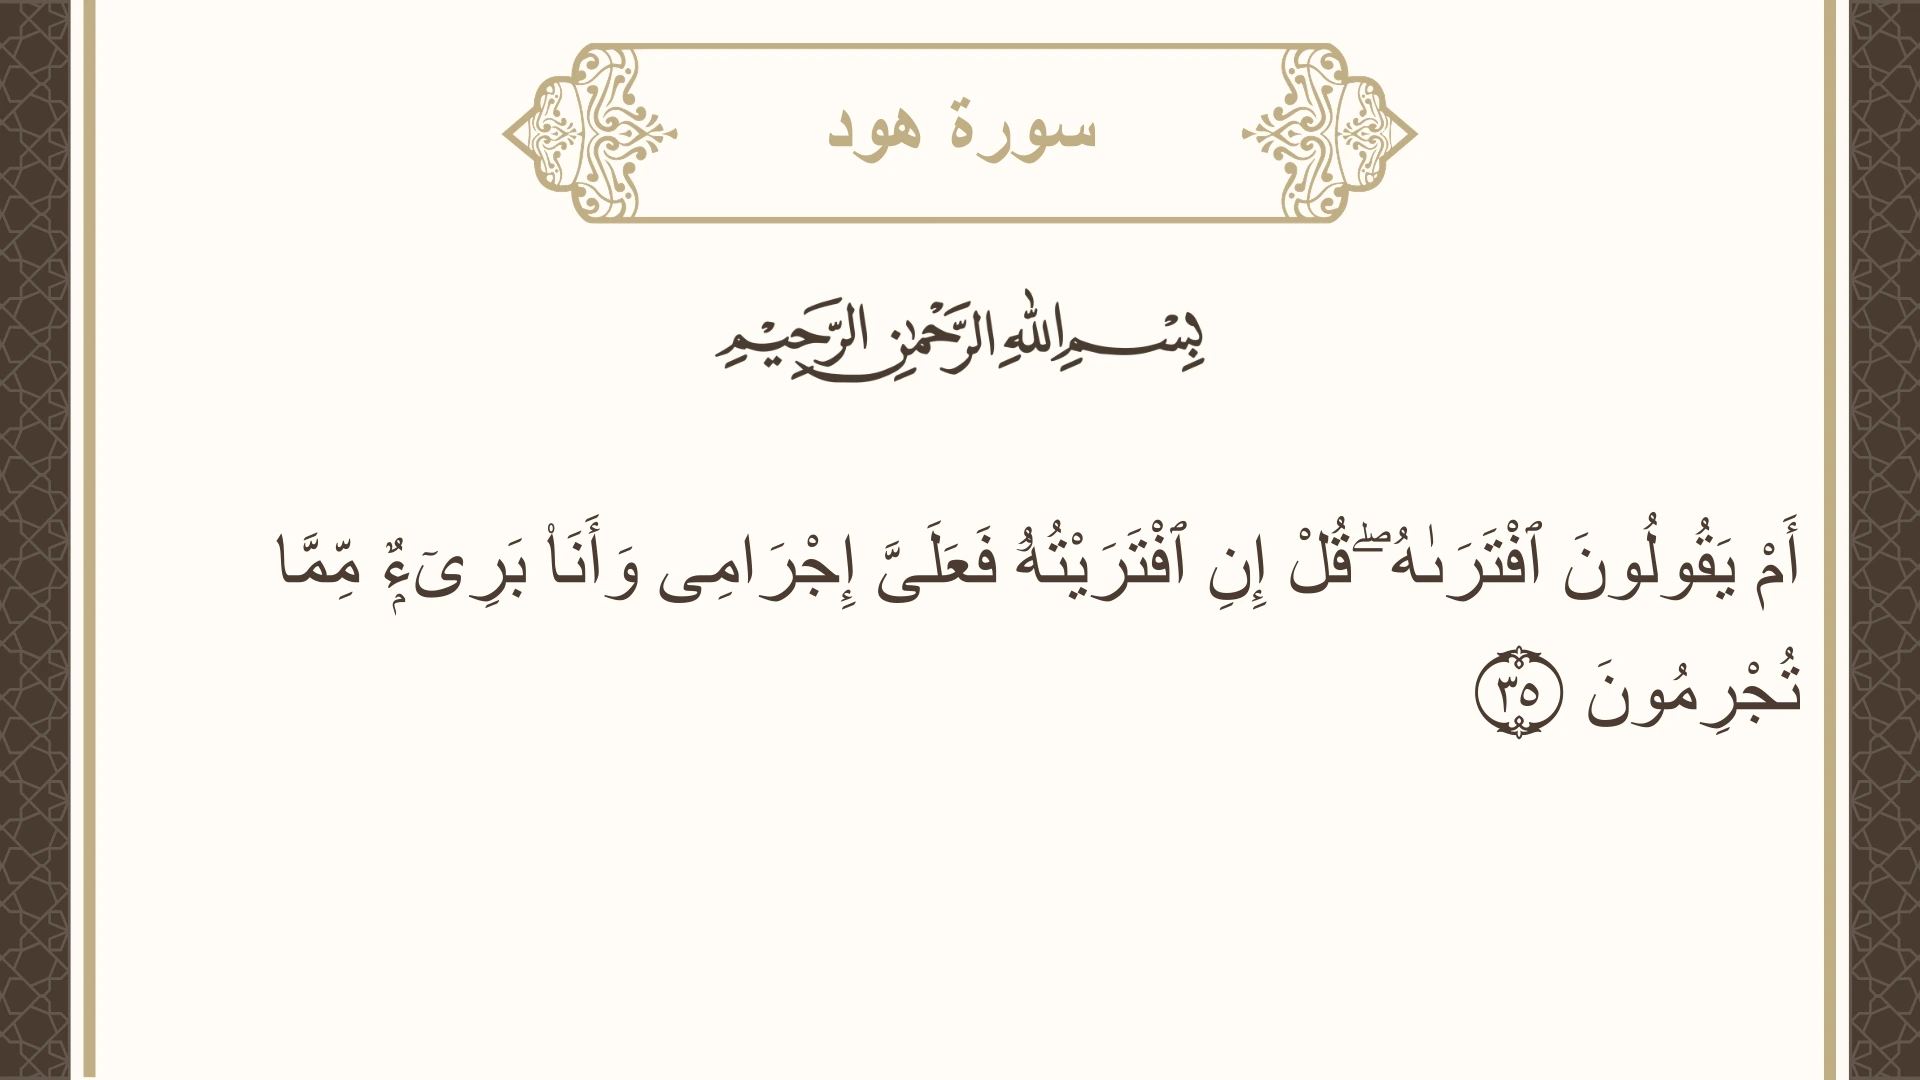 سورة هود
بِسْمِ اللهِ الرَّحْمٰنِ الرَّحِيْمِ
أَمْ يَقُولُونَ ٱفْتَرَىٰهُ ۖ قُلْ إِنِ ٱفْتَرَيْتُهُۥ فَعَلَىَّ إِجْرَامِى وَأَنَا۠ بَرِىٓءٌۭ مِّمَّا
تُجْرِمُونَ ٣٥